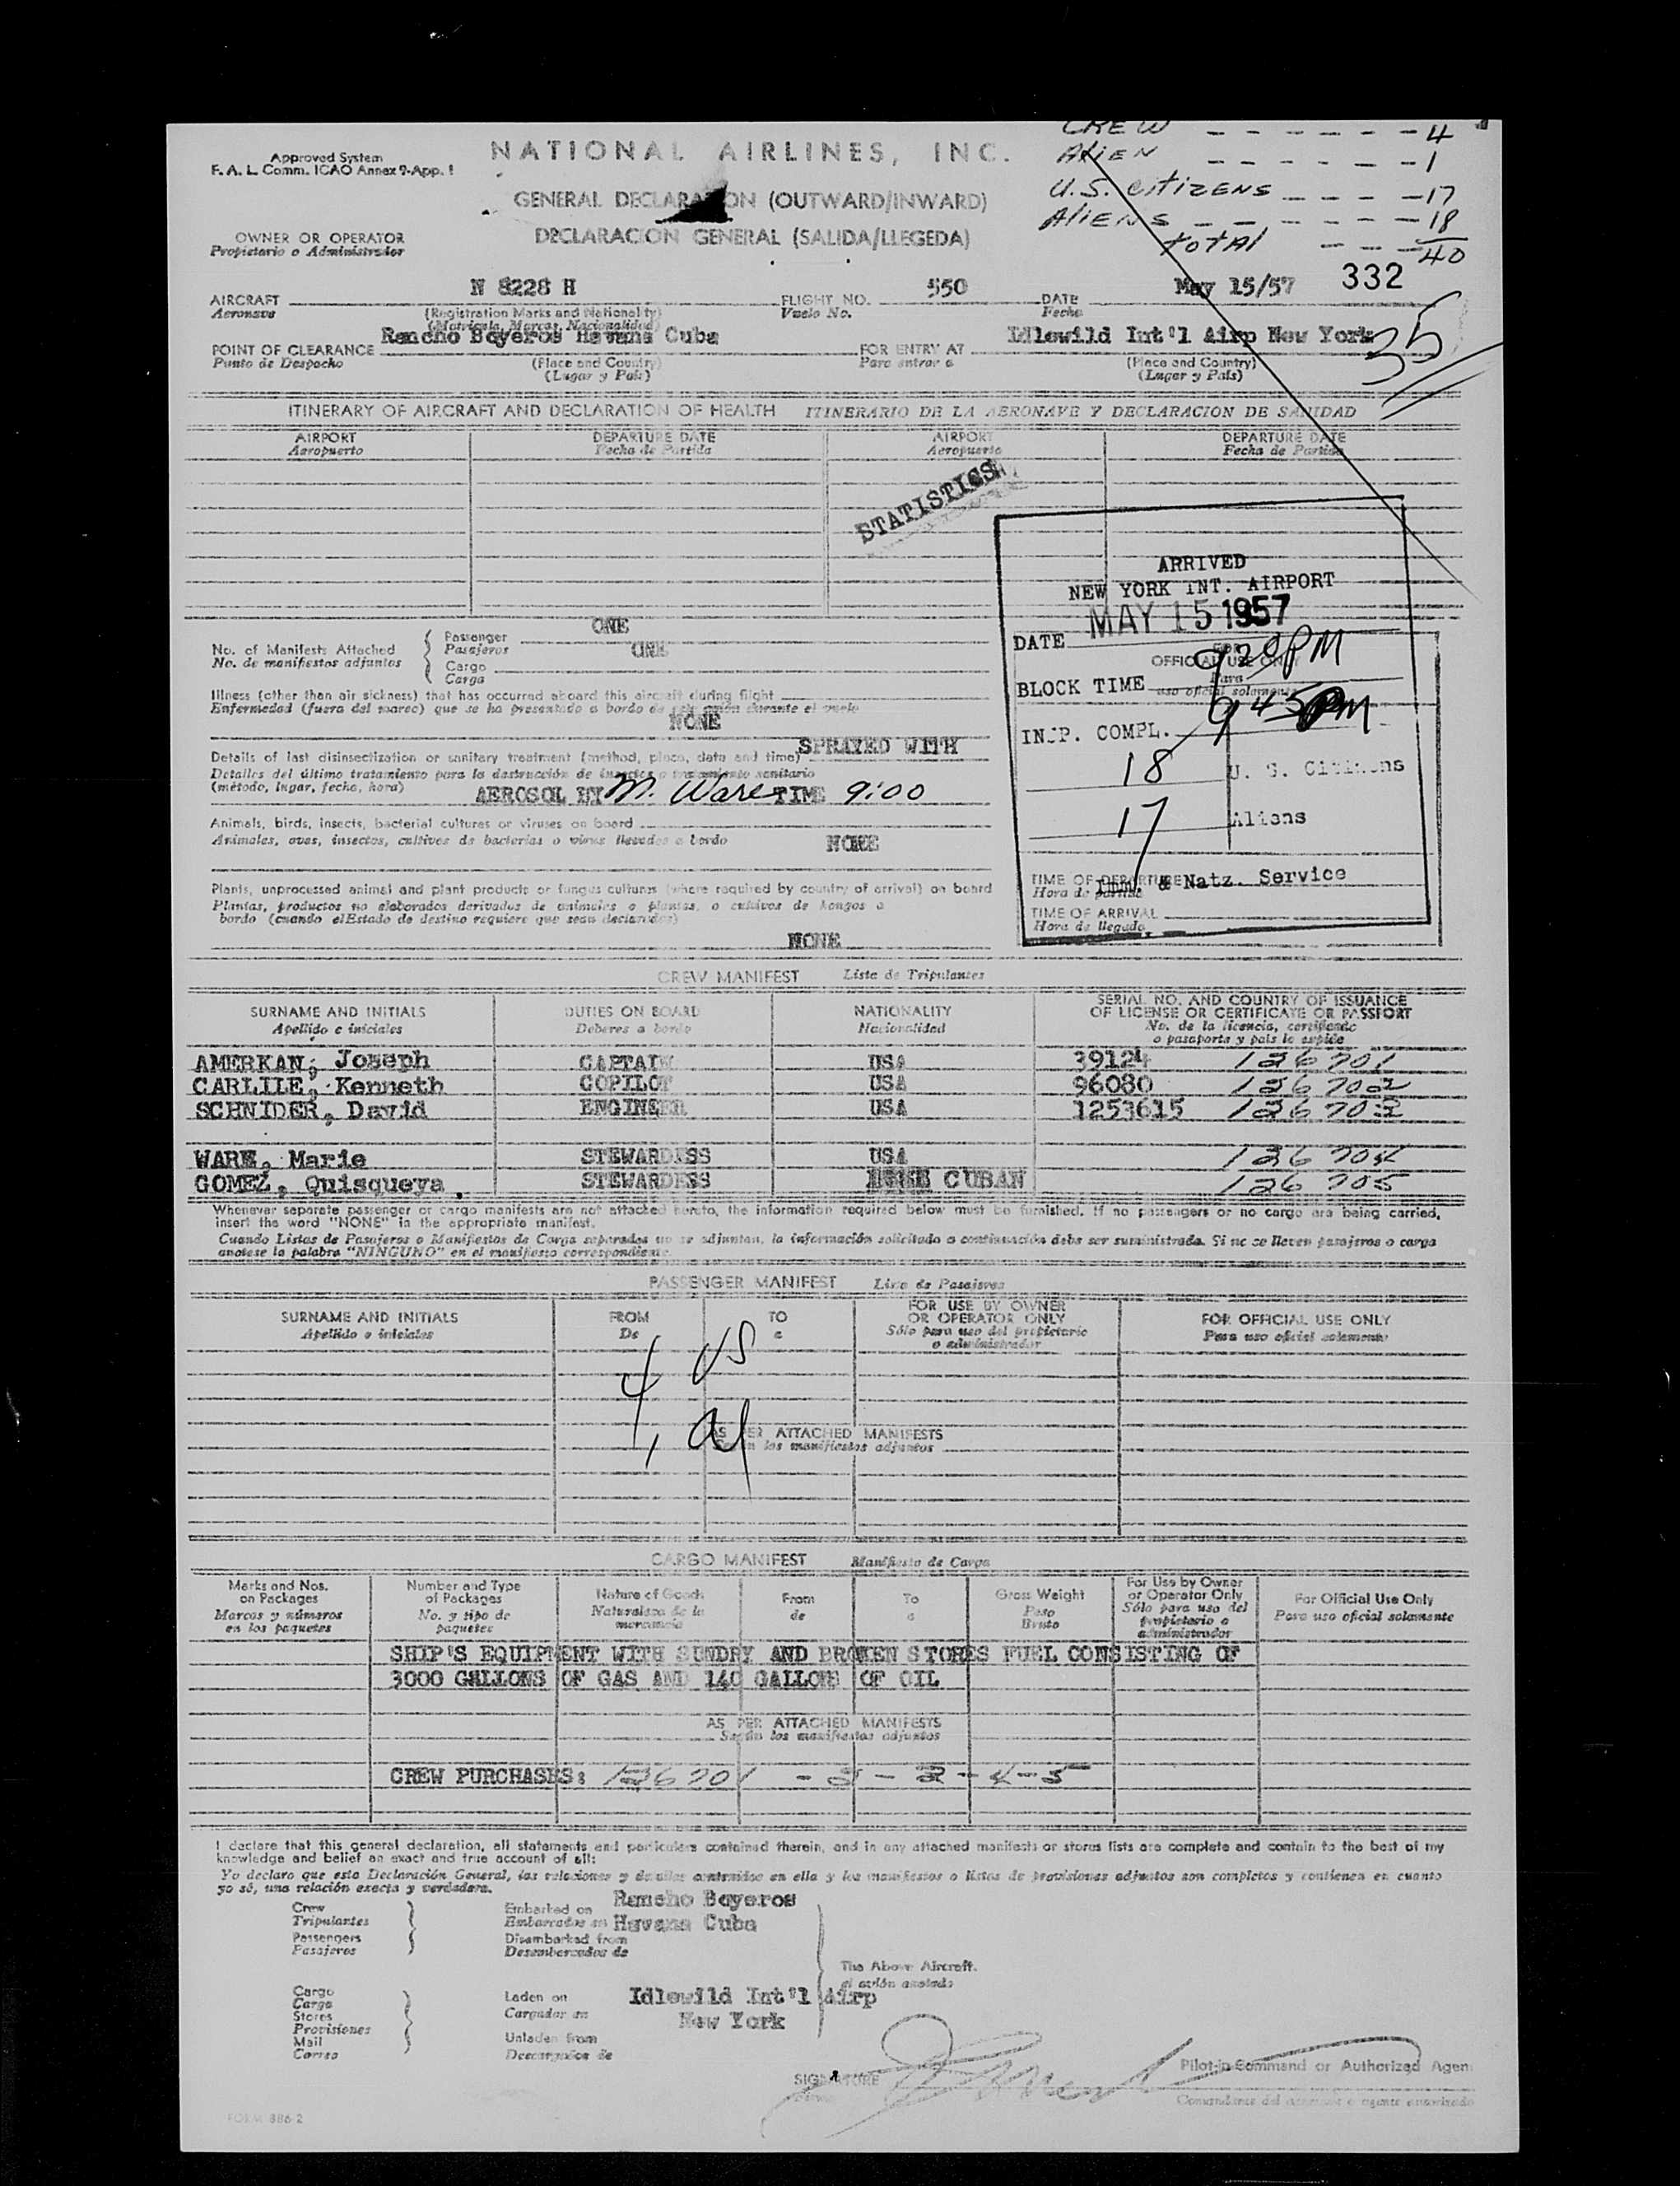 CREW - - - - - - 4
Alien - - - - - - 1
U.S. Citizens - - - - 17
Aliens - - - - - - 18
total - - - 40
Approved System
F. A. L. Comm. ICAO Annex 9-App. 1
NATIONAL AIRLINES, INC.
GENERAL DECLARATION (OUTWARD/INWARD)
DECLARACION GENERAL (SALIDA/LLEGEDA)
OWNER OR OPERATOR
Propietario o Administrador
332
35
AIRCRAFT N 8228 H FLIGHT NO. 550 DATE May 15/57
Aeronave (Registration Marks and Nationality) Vuelo No. Fecha
(Matricula, Marcas, Nacionalidad)
POINT OF CLEARANCE Rancho Boyeros Havana Cuba FOR ENTRY AT Idlewild Int'l Airp New York
Punto de Despacho (Place and Country) Para entrar a (Place and Country)
(Lugar y Pais) (Lugar y Pais)
ITINERARY OF AIRCRAFT AND DECLARATION OF HEALTH ITINERARIO DE LA AERONAVE Y DECLARACION DE SANIDAD
AIRPORT DEPARTURE DATE AIRPORT DEPARTURE DATE
Aeropuerto Fecha de Partida Aeropuerto Fecha de Partida
STATISTICS
ARRIVED
NEW YORK INT. AIRPORT
DATE MAY 15 1957
OFFICIAL USE ONLY
Para
uso oficial solamente
BLOCK TIME 920PM
INSP. COMPL. 945PM
18 U. S. Citizens
17 Aliens
Imm. & Natz. Service
TIME OF DEPARTURE
Hora de partida
TIME OF ARRIVAL
Hora de llegada
No. of Manifests Attached Passenger ONE
No. de manifiestos adjuntos Pasajeros
Cargo ONE
Carga
Illness (other than air sickness) that has occurred aboard this aircraft during flight
Enfermedad (fuera del mareo) que se ha presentado a bordo de este avión durante el vuelo
NONE
Details of last disinsectization or sanitary treatment (method, place, date and time) SPRAYED WITH
Detalles del último tratamiento para la destrucción de insectos o tratamiento sanitario
(método, lugar, fecha, hora) AEROSOL BY M. Ware TIME 9:00
Animals, birds, insects, bacterial cultures or viruses on board
Animales, aves, insectos, cultivos de bacterias o virus llevados a bordo NONE
Plants, unprocessed animal and plant products or fungus cultures (where required by country of arrival) on board
Plantas, productos no elaborados derivados de animales o plantas, o cultivos de hongos a
bordo (cuando elEstado de destino requiere que sean declarados)
NONE
CREW MANIFEST Lista de Tripulantes
SURNAME AND INITIALS DUTIES ON BOARD NATIONALITY SERIAL NO. AND COUNTRY OF ISSUANCE
OF LICENSE OR CERTIFICATE OR PASSPORT
Apellido e iniciales Deberes a bordo Nacionalidad No. de la licencia, certificado
o pasaporte y pais lo expide
AMERKAN, Joseph CAPTAIN USA 39124 126701
CARLILE, Kenneth COPILOT USA 96080 126702
SCHNIDER, David ENGINEER USA 1253615 126703
WARE, Marie STEWARDESS USA 126704
GOMEZ, Quisqueya. STEWARDESS CUBAN 126705
Whenever separate passenger or cargo manifests are not attached hereto, the information required below must be furnished. If no passengers or no cargo are being carried,
insert the word "NONE" in the appropriate manifest.
Cuando Listas de Pasajeros o Manifiestos de Carga separados no se adjuntan, la información solicitada a continuación debe ser suministrada. Si no se lleven pasajeros o carga
anotese la palabra "NINGUNO" en el manifiesto correspondiente.
PASSENGER MANIFEST Lista de Pasajeros
SURNAME AND INITIALS FROM TO FOR USE BY OWNER
OR OPERATOR ONLY FOR OFFICIAL USE ONLY
Apellido e iniciales De a Sólo para uso del propietario
o administrador Para uso oficial solamente
4 US
1 al
AS PER ATTACHED MANIFESTS
Según los manifiestos adjuntos
CARGO MANIFEST Manifiesto de Carga
Marks and Nos.
on Packages
Marcas y números
en los paquetes
Number and Type
of Packages
No. y tipo de
paquetes
Nature of Goods
Naturaleza de la
mercancia
From
de
To
a
Gross Weight
Peso
Bruto
For Use by Owner
or Operator Only
Sólo para uso del
propietario o
administrador
For Official Use Only
Para uso oficial solamente
SHIP'S EQUIPMENT WITH SUNDRY AND BROKEN STORES FUEL CONSISTING OF
3000 GALLONS OF GAS AND 140 GALLONS OF OIL
AS PER ATTACHED MANIFESTS
Según los manifiestos adjuntos
CREW PURCHASES: 126701 - 2 - 3 - 4 - 5
I declare that this general declaration, all statements and particulars contained therein, and in any attached manifests or stores lists are complete and contain to the best of my
knowledge and belief an exact and true account of all:
Yo declaro que esta Declaración General, las relaciones y detalles contenidos en ella y los manifiestos o listas de provisiones adjuntos son completos y contienen en cuanto
yo sé, una relación exacta y verdadera.
Crew
Tripulantes
Passengers
Pasajeros
Embarked on Rancho Boyeros
Embarcados en Havana Cuba
Disembarked from
Desembarcados de
The Above Aircraft.
el avión anotado
Cargo
Carga
Stores
Provisiones
Mail
Correo
Laden on Idlewild Int'l Airp
Cargados en New York
Unladen from
Descargados de
SIGNATURE
Pilot-in-Command or Authorized Agent
Comandante del aeronave o agente autorizado
FORM 886-2